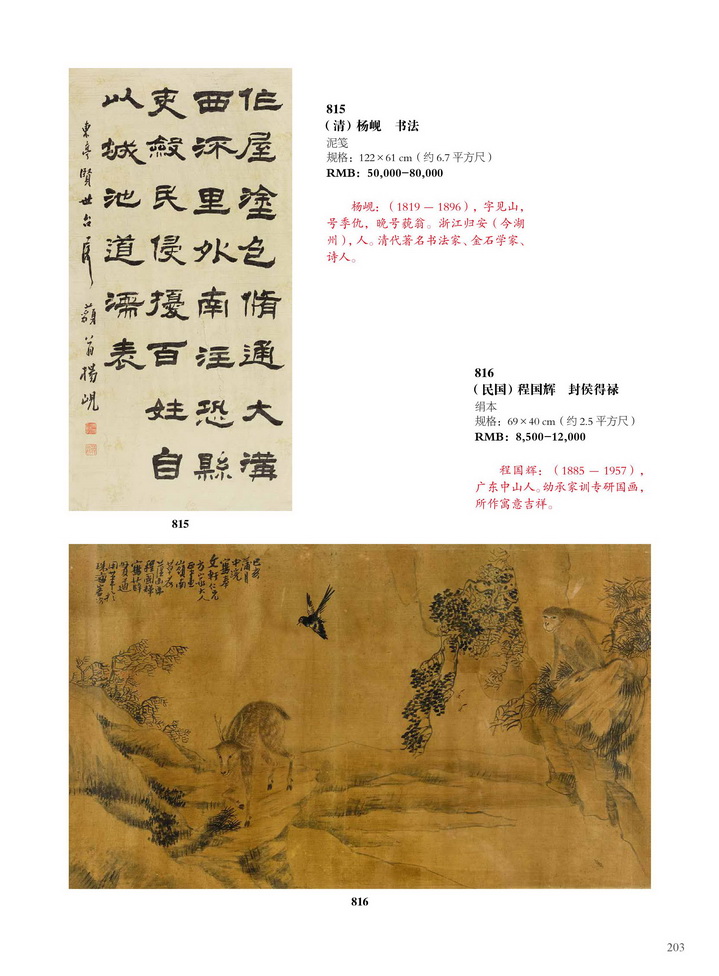 作屋塗色脩通大溝
西流里外南注恐縣
吏斂民侵擾百姓自
以城池道濡麦
東亭賢世台屬 藐翁楊峴
815
815
（清）杨岘 书法
泥笺
规格：122×61 cm（约 6.7 平方尺）
RMB：50,000-80,000
杨岘：（1819 — 1896），字见山，
号季仇，晚号藐翁。浙江归安（今湖
州），人。清代著名书法家、金石学家、
诗人。
816
（民国）程国辉 封侯得禄
绢本
规格：69×40 cm（约 2.5 平方尺）
RMB：8,500-12,000
程国辉：（1885 — 1957），
广东中山人。幼承家训专研国画，
所作寓意吉祥。
蒲月
中浣
文軒仁兄
816
203